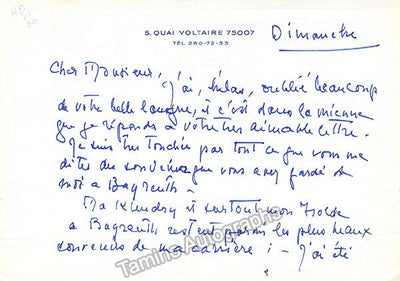 5, QUAI VOLTAIRE 75007
TÉL. 260-72-33
Dimanche
Cher Monsieur,
J'ai, hélas, oublié beaucoup
de votre belle langue, et c'est dans la mienne
que je réponds à votre très aimable lettre.
Je suis très touchée par tout ce que vous me
dites du souvenir que vous avez gardé de
moi à Bayreuth -
Ma Kundry et surtout mon Isolde
a Bayreuth restent parmi les plus beaux
souvenirs de ma carrière : - J'ai été
Tamino Autographs